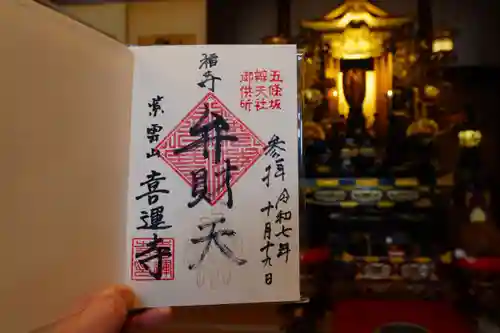 五條坂
辯天社
御供所
参拝 令和七年
十月十九日
福寿
弁財天
紫雲山
喜運寺